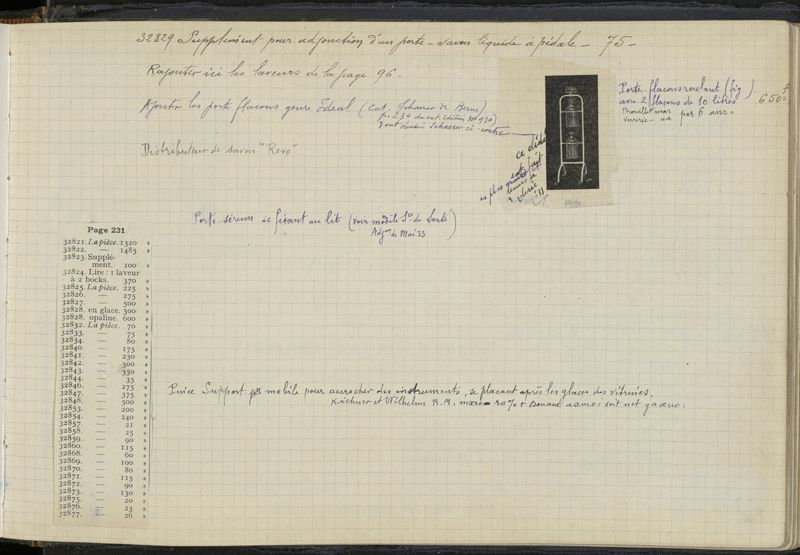 32829 Supplément pour adjonction d'un porte-savon liquide à pédale - 75 -
Rajouter ici les laveurs de la page 96.
Ajouter les porte flacons genre Ideal (Cat. Schaerer de Berne)
p. 239 du cat. édition N° 930)
dont dessin Schaerer ci-contre
Distributeur de savon "Revo"
Porte-flacons roulant (fig)
avec 2 flacons de 10 litres
650=
par 6
ce cliché
est fait
en plus grand
Porte-sérum se fixant au lit (voir modèle Sce de Santé)
Adjon de Mai 33
Page 231
32821. La pièce. 1320 »
32822. — 1485 »
32823. Supplé-
ment. 100 »
32824. Lire : 1 laveur
à 2 bocks. 370 »
32825. La pièce. 225 »
32826. — 275 »
32827. — 500 »
32828. en glace. 300 »
32828. opaline. 600 »
32832. La pièce. 70 »
32833. — 75 »
32834. — 80 »
32840. — 175 »
32841. — 230 »
32842. — 300 »
32843. — 350 »
32844. — 35 »
32846. — 275 »
32847. — 375 »
32848. — 500 »
32853. — 200 »
32854. — 240 »
32857. — 21 »
32858. — 25 »
32859. — 90 »
32860. — 115 »
32868. — 60 »
32869. — 100 »
32870. — 80 »
32871. — 115 »
32872. — 90 »
32873. — 130 »
32875. — 20 »
32876. — 23 »
32877. — 26 »
Support mobile pour accrocher des instruments, se plaçant après les glaces des vitrines.
Kirchner et Wilhelm R.M. 20% + Douane soit net